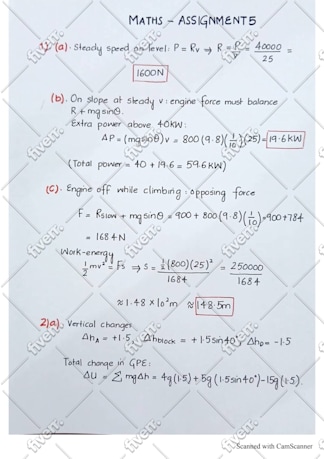 MATHS - ASSIGNMENT 5
1) (a). Steady speed on level: P = Rv ⇒ R = P/v = 40000/25 =
1600N
(b). On slope at steady v: engine force must balance
R + mg sinθ.
Extra power above 40kW:
ΔP = (mg sinθ)v = 800(9.8)(1/10)(25) = 19.6kW
(Total power = 40 + 19.6 = 59.6kW)
(C). Engine off while climbing: opposing force
F = Rslow + mg sinθ = 900 + 800(9.8)(1/10) = 900 + 784
= 1684N
Work-energy
1/2 mv² = Fs ⇒ s = 1/2(800)(25)²/1684 = 250000/1684
≈ 1.48 × 10²m ≈ 148.5m
2)a). Vertical changes
ΔhA = +1.5, Δhblock = +1.5 sin40°, ΔhD = -1.5
Total change in GPE:
ΔU = Σ mgΔh = 4g(1.5) + 5g(1.5 sin40°) - 15g(1.5).
fiverr.
Scanned with CamScanner